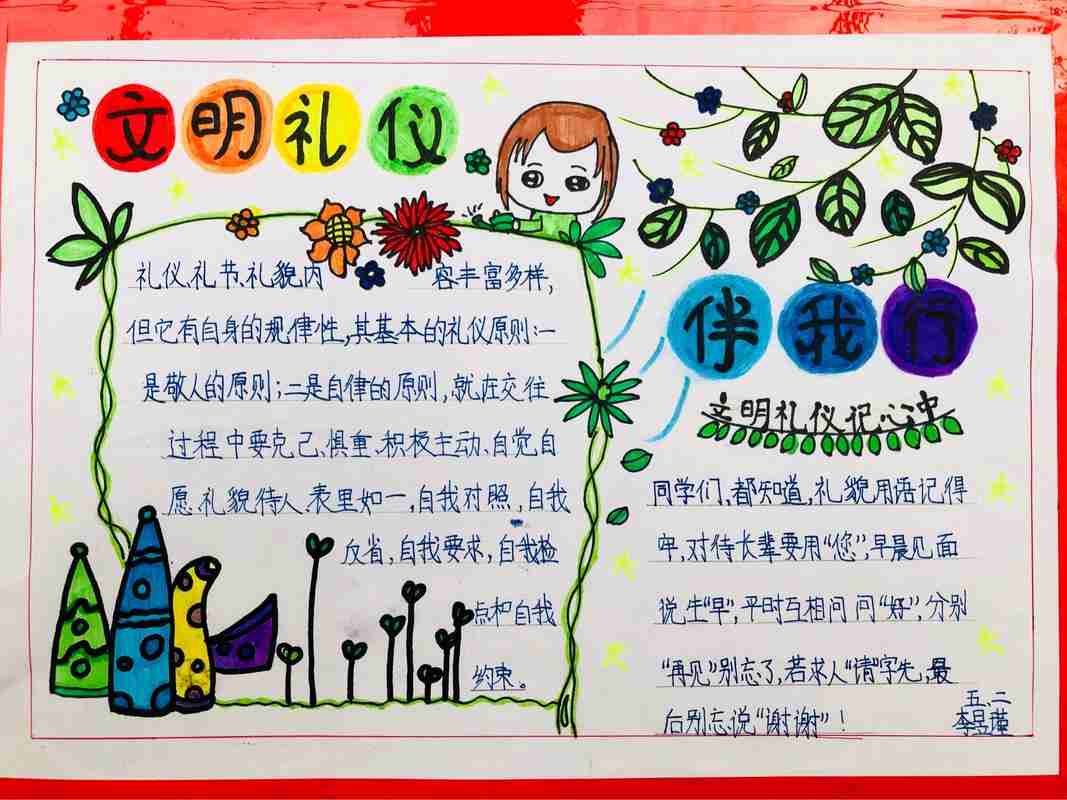 文明礼仪
伴我行
礼仪、礼节、礼貌内容丰富多样,
但它有自身的规律性,其基本的礼仪原则:一
是敬人的原则;二是自律的原则,就在交往
过程中要克己、慎重、积极主动、自觉自
愿、礼貌待人、表里如一,自我对照,自我
反省,自我要求,自我检
点和自我
约束。
文明礼仪记心中
同学们,都知道,礼貌用语记得
牢,对待长辈要用“您”,早晨见面
说生“早”,平时互相问问“好”,分别
“再见”别忘了,若求人“请”字先,最
后别忘说“谢谢”!
五、二
李昱瑾